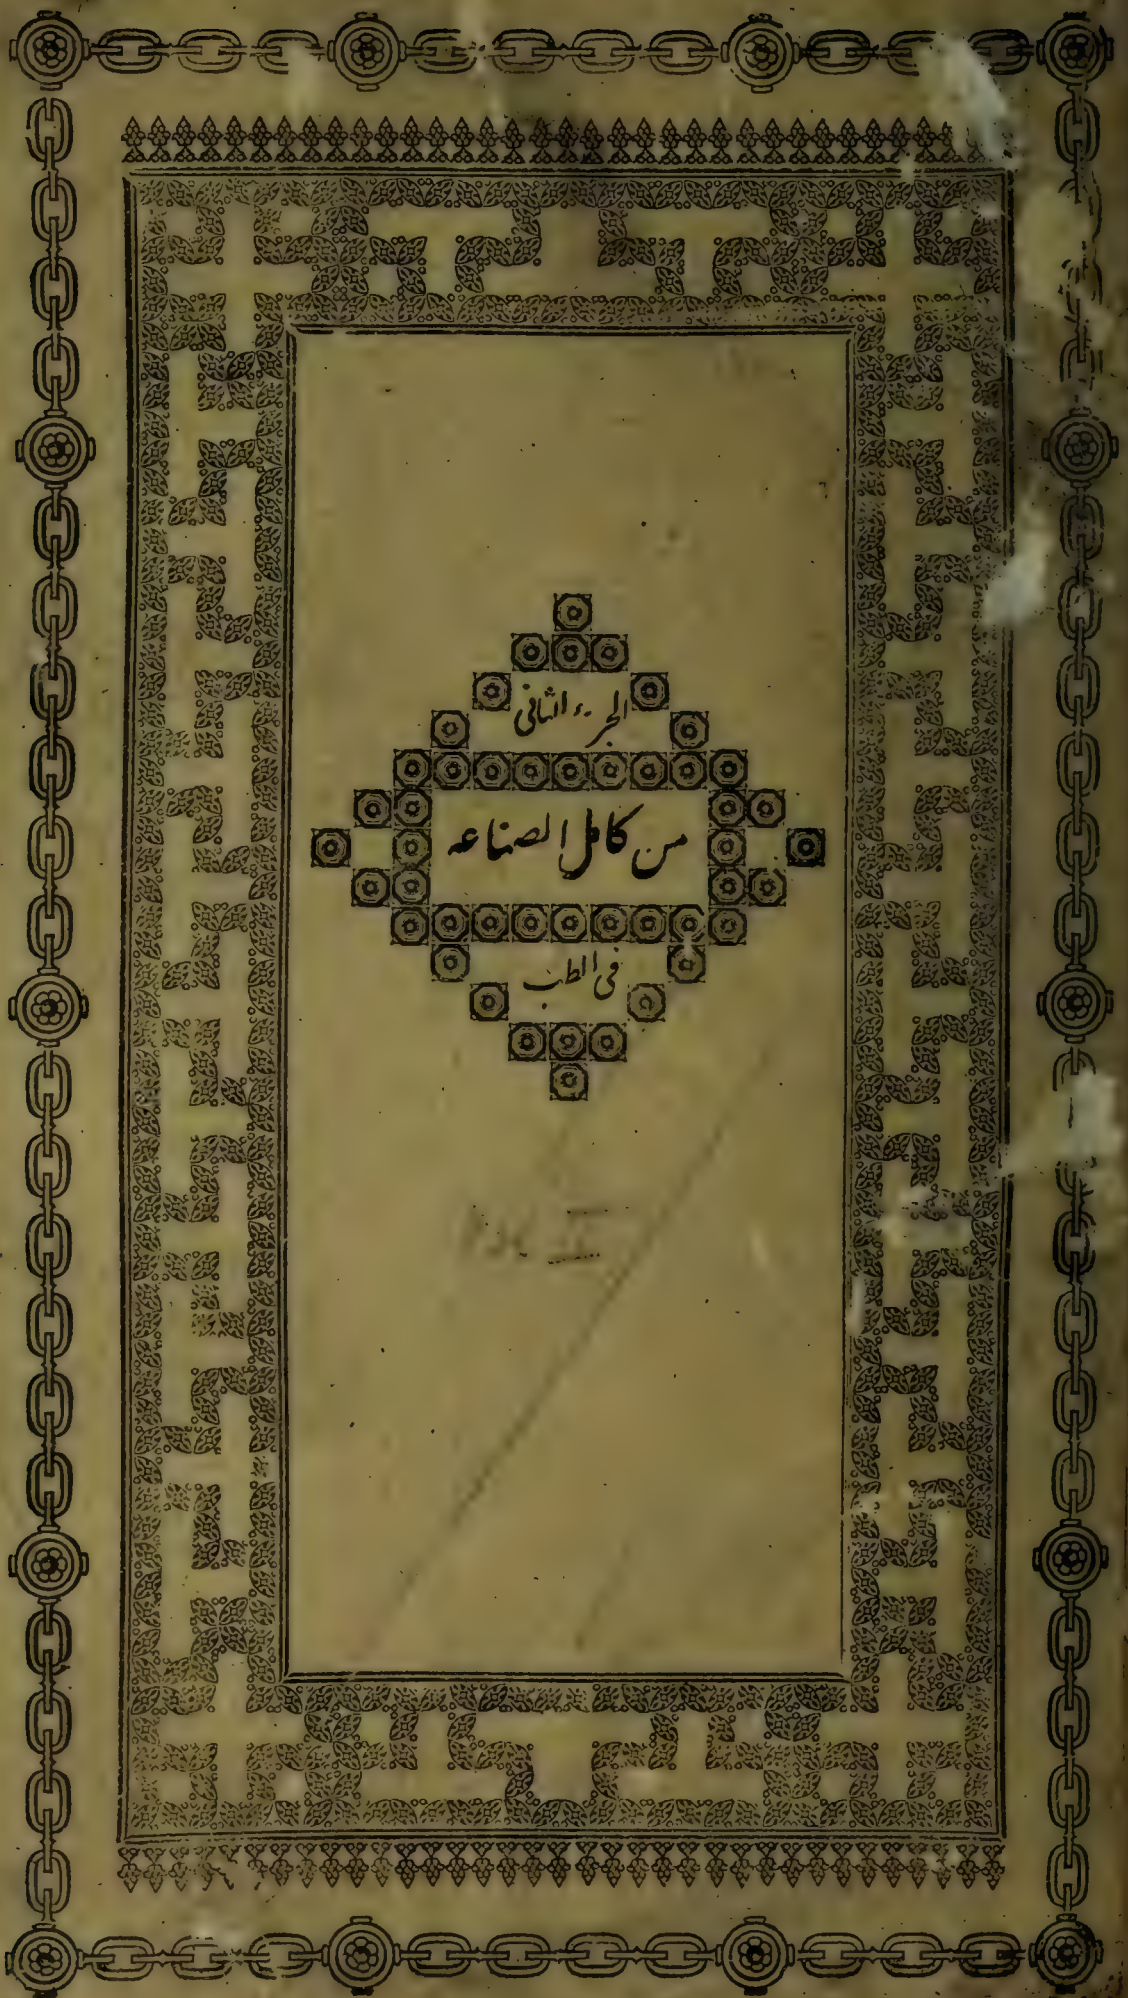 الجزء الثانى
من كامل الصناعه
فى الطب